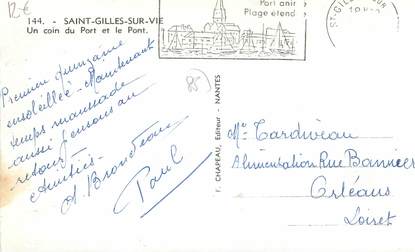 12€
144. - SAINT-GILLES-SUR-VIE
Un coin du Port et le Pont.
Port
Plage étend
ST-GILLES SUR
Première quinzaine
ensoleillée - Maintenant
temps maussade
aussi pensons au
retour
Amitiés -
Paul
F. CHAPEAU, Editeur - NANTES
85
Me Tardiveau
Alimentation Rue Bannier
Orléans
Loiret